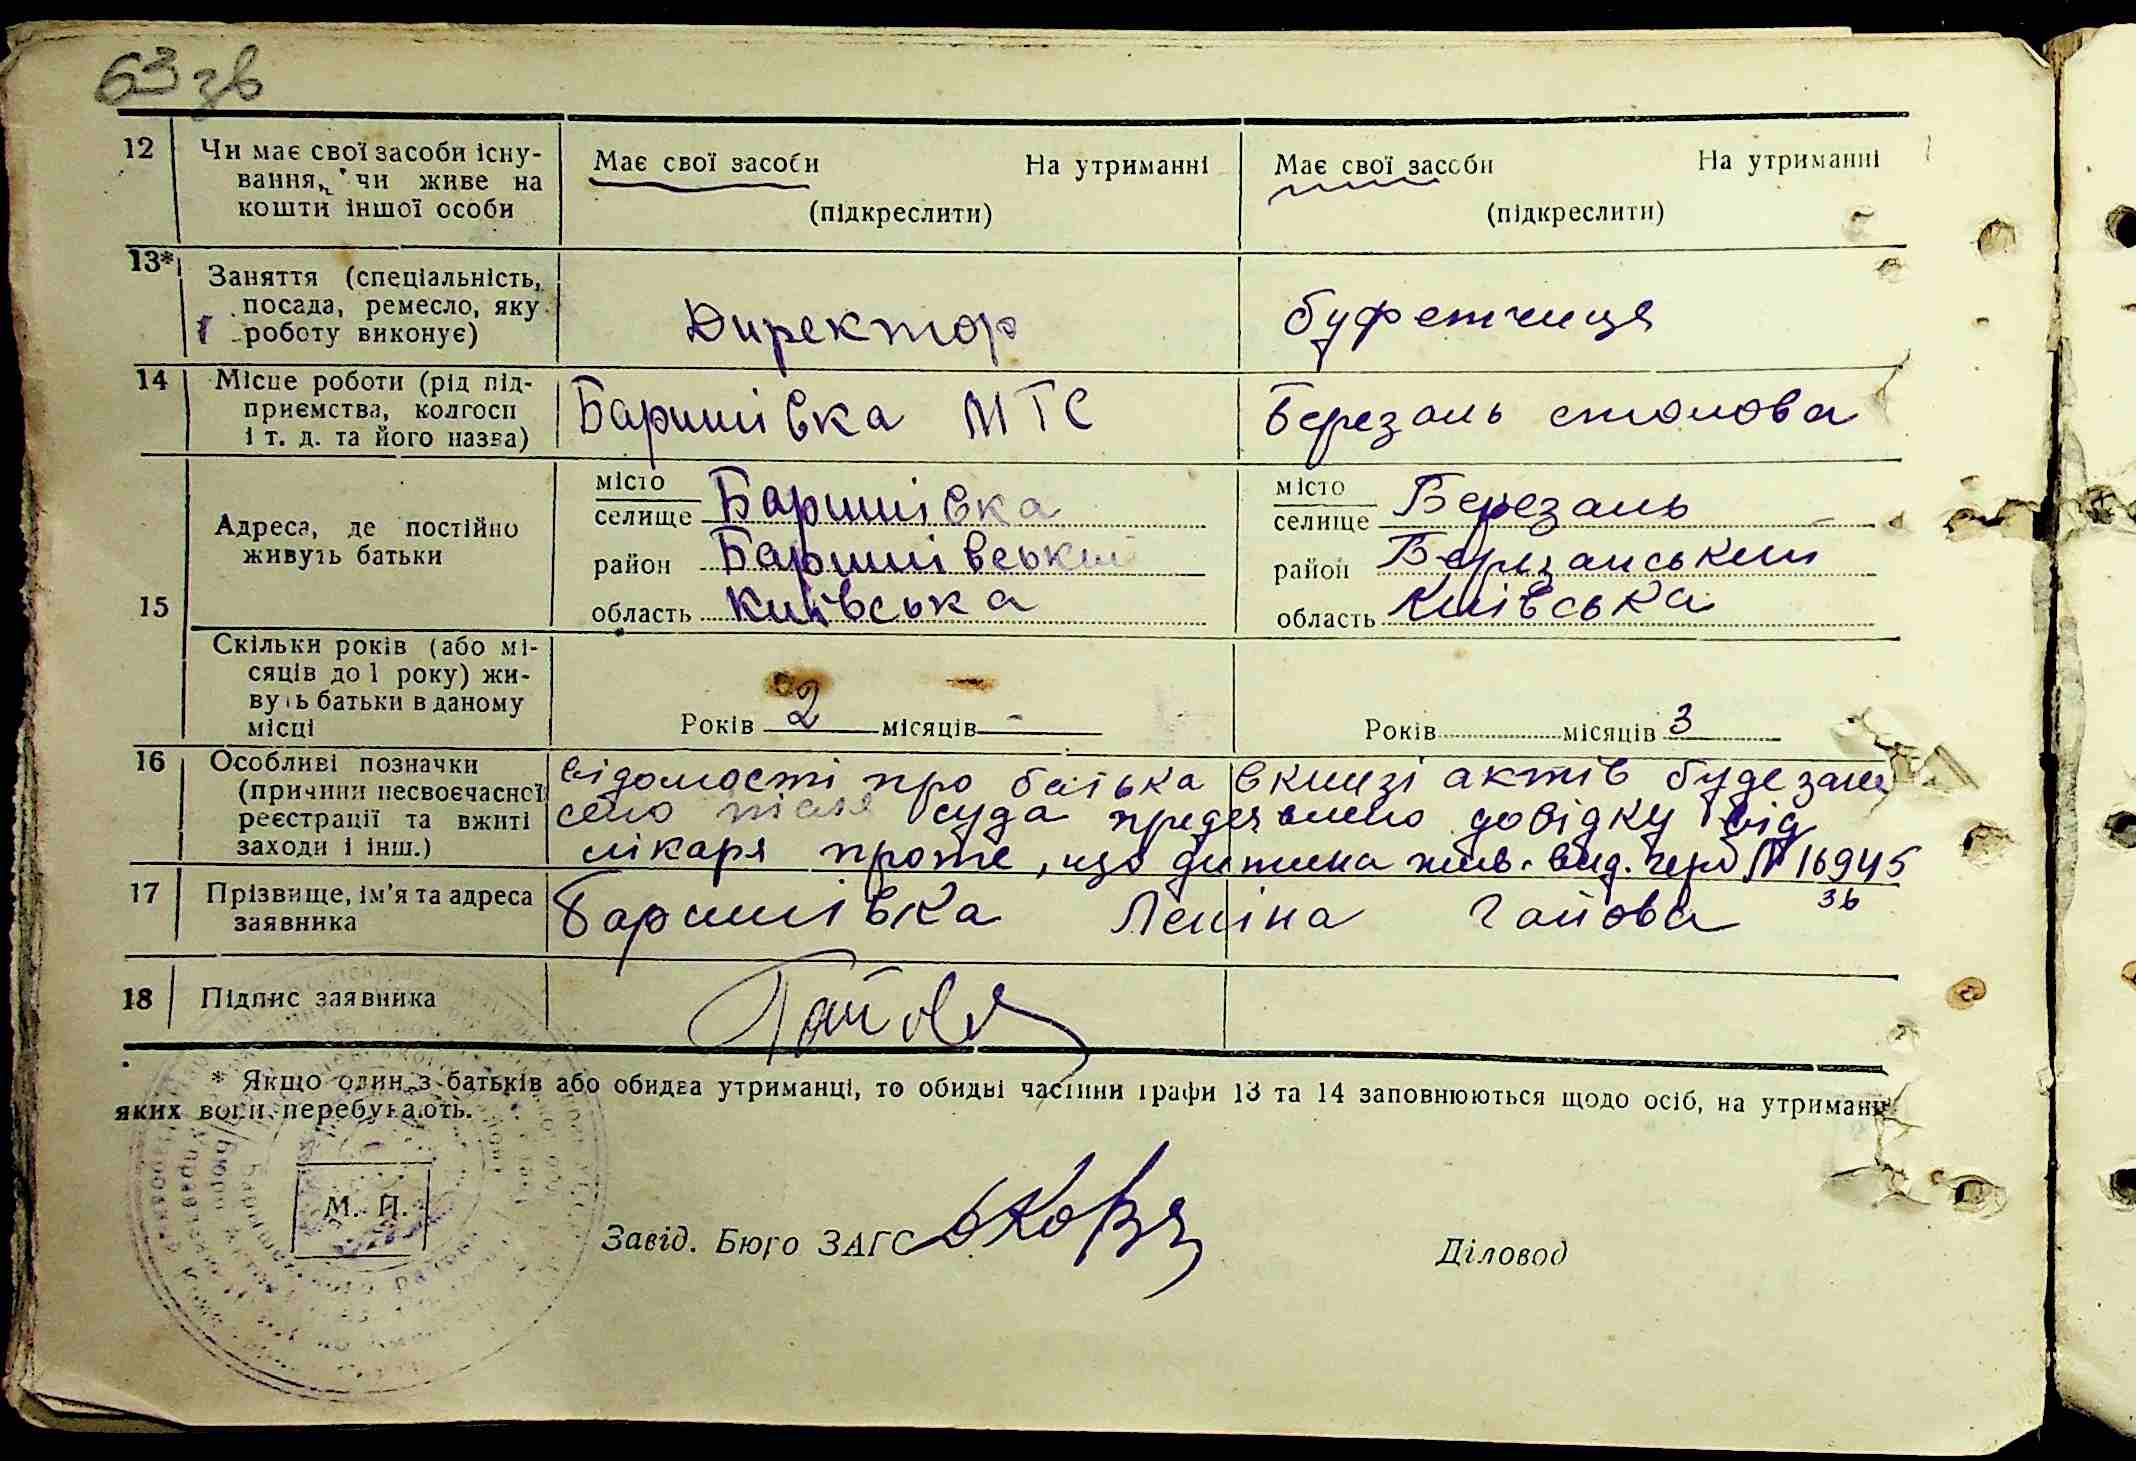 63 зв
12 Чи має свої засоби існу- Має свої засоби На утриманні Має свої засоби На утриманні
вання, чи живе на
кошти іншої особи (підкреслити) (підкреслити)
13* Заняття (спеціальність,
посада, ремесло, яку Директор буфетчиця
роботу виконує)
14 Місце роботи (рід під-
приємства, колгосп Баришівка МТС Березань столова
і т. д. та його назва)
місто місто
селище Баришівка селище Березань
Адреса, де постійно
живуть батьки район Баришівський район Березанський
15 область Київська область Київська
Скільки років (або мі-
сяців до 1 року) жи-
вуть батьки в даному
місці Років 2 місяців - Років місяців 3
16 Особливі позначки відомості про батька в книзі актів буде зане
(причини несвоєчасної
реєстрації та вжиті сено після суда предявлено довідку від
заходи і інш.) лікаря проте, що дитина жив. вид. черв № 16945
17 Прізвище, ім'я та адреса Баришівка Леніна Гайова 36
заявника
18 Підпис заявника Гайова
* Якщо один з батьків або обидва утриманці, то обидві частини графи 13 та 14 заповнюються щодо осіб, на утриманні
яких вони перебувають.
М. П.
Завід. Бюро ЗАГС Діловод